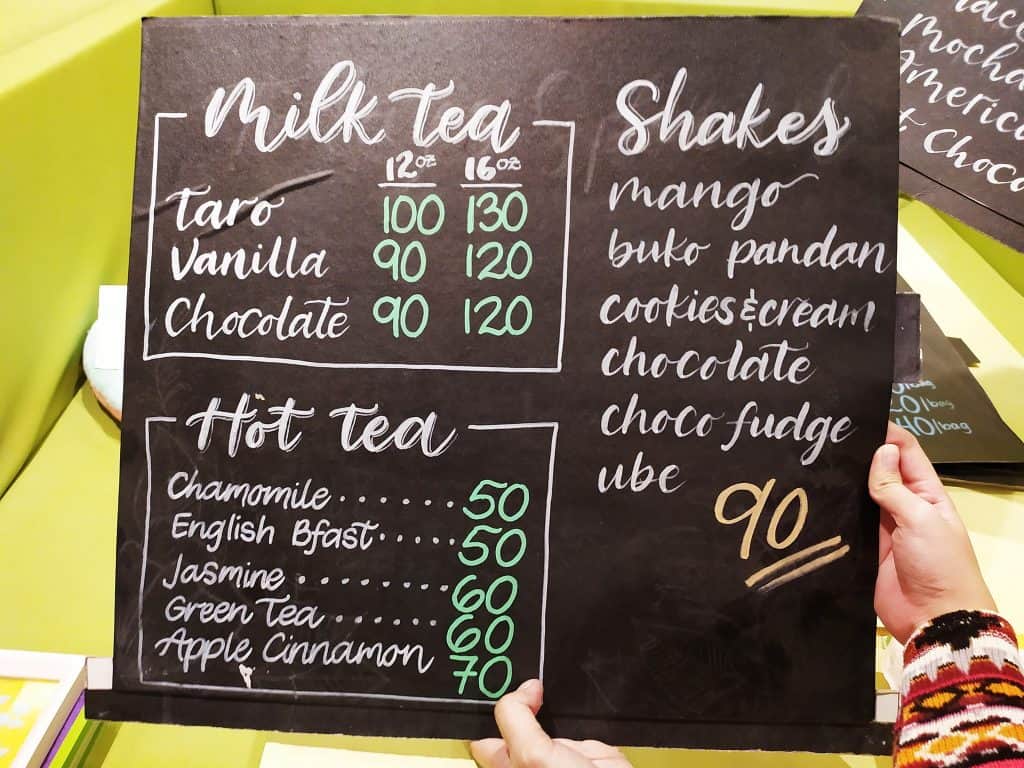 Milk Tea
12oz 16oz
Taro 100 130
Vanilla 90 120
Chocolate 90 120
Hot Tea
Chamomile . . . . . . 50
English Bfast . . . . . 50
Jasmine . . . . . . . . 60
Green Tea . . . . . . 60
Apple Cinnamon 70
Shakes
mango
buko pandan
cookies & cream
chocolate
choco fudge
ube
90
Mocha